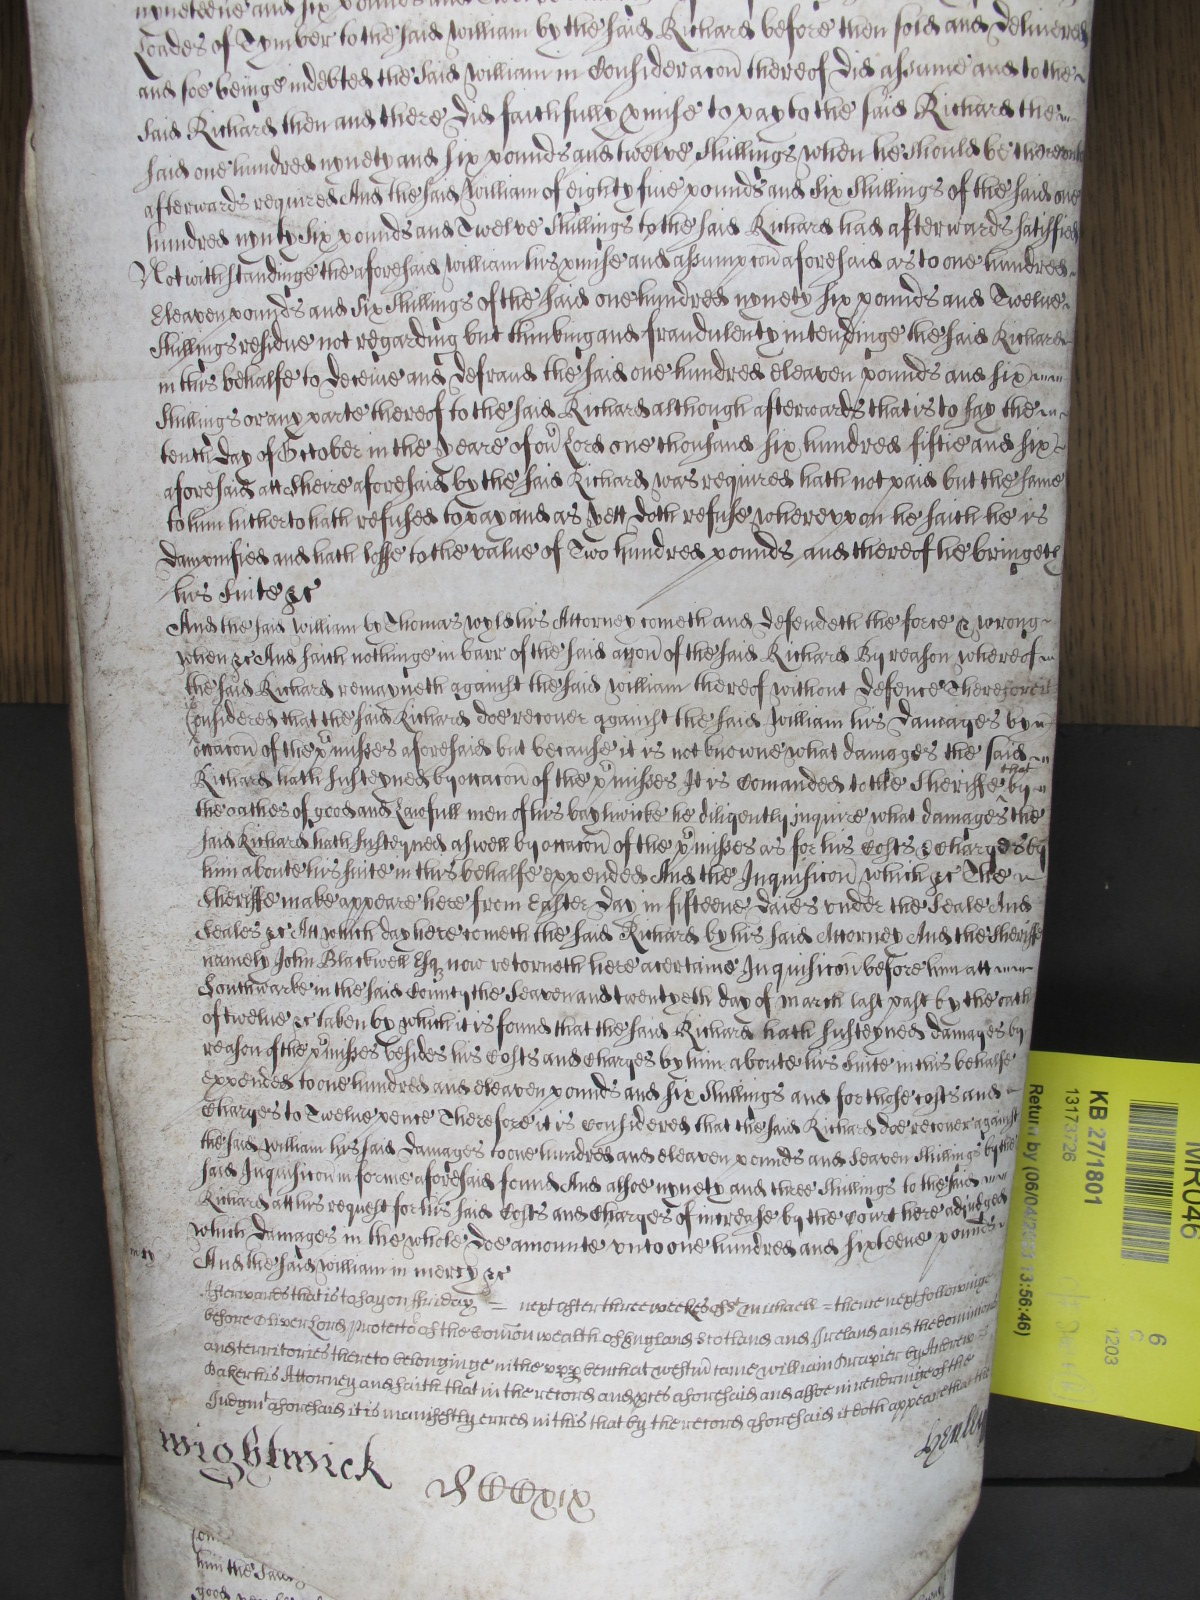 nyneteene and six pounds and
Loades of Tymber to the said William by the said Richard before then sold and delivered
and soe beinge indebted the said William in Consideracon thereof did assume and to the
said Richard then and there did faithfully pmise to pay to the said Richard the
said one hundred nynety and six pounds and twelve shillings when he should be thereunto
afterwards required And the said William of eighty five pounds and six shillings of the said one
hundred nynty six pounds and Twelve shillings to the said Richard had afterwards satisfied
Notwithstandinge the aforesaid William his pmise and assumpcon aforesaid as to one hundred
Eleaven pounds and six shillings of the said one hundred nynety six pounds and Twelve
shillings residue not regarding but thinking and fraudulently intendinge the said Richard
in this behalfe to deceive and defraud the said one hundred eleaven pounds and six
shillings or any parte thereof to the said Richard although afterwards that is to say the
tenth day of October in the yeare of our Lord one thousand six hundred fiftie and six
aforesaid att Sheire aforesaid by the said Richard was required hath not paid but the same
to him hitherto hath refused to pay and as yett doth refuse whereuppon he saith he is
dampnified and hath losse to the value of Two hundred pounds and thereof he bringeth
his suite &c
And the said William by Thomas Wyld his Attorney cometh and defendeth the force & wrong
when &c And saith nothinge in barr of the said accon of the said Richard By reason whereof
the said Richard remayneth against the said William thereof without defence Therefore it is
Considered that the said Richard doe recover against the said William his damages by
occacon of the pmisses aforesaid but because it is not knowne what damages the said
Richard hath susteyned by occacon of the pmisses It is Comanded to the Sheriffe that by
the oathes of good and Lawfull men of his baylwicke he diligently inquire what damages the
said Richard hath susteyned aswell by occacon of the pmisses as for his Costs & Charges by
him aboute his suite in this behalfe expended And the Inquisicon which &c The
Sheriffe make appeare here from Easter day in fifteene daies under the Seale And
Seales &c Att which day here cometh the said Richard by his said Attorney And the Sheriffe
namely John Blackwell Esqr now retorneth here a certaine Inquisicon before him att
Southwarke in the said County the seaven and twentyeth day of March last past by the oath
of twelve &c taken by which it is found that the said Richard hath susteyned damages by
reason of the pmisses besides his Costs and Charges by him aboute his suite in this behalfe
expended to one hundred and eleaven pounds and six shillings and for those costs and
Charges to Twelve pence Therefore it is Considered that the said Richard doe recover against
the said William his said damages to one hundred and eleaven pounds and seaven shillings by the
said Inquisicon in forme aforesaid found And alsoe nynety and three shillings to the said
Richard att his request for his said Costs and Charges of increase by the Court here adjudged
which damages in the whole doe amounte unto one hundred and sixteene pounds
m cy
And the said William in mercy &c
Afterwards that is to say on Friday = next after three weekes of St Michaell = thence next followinge
before Oliver Lord Protector of the Comonwealth of England Scotland and Ireland and the dominions
and territories thereto belonginge in the upp bench at Westm came William Draxier by Andrew
Baker his Attorney and saith that in the record and pces aforesaid and alsoe in rendringe of the
Judgmt aforesaid it is manifestly erred in this that by the record aforesaid it doth appeare that the
Wightwick
Henley
him the
good
KB 27/1801
13173726
Return by (06/04/
13:56:46)
MR046
6
C
1203